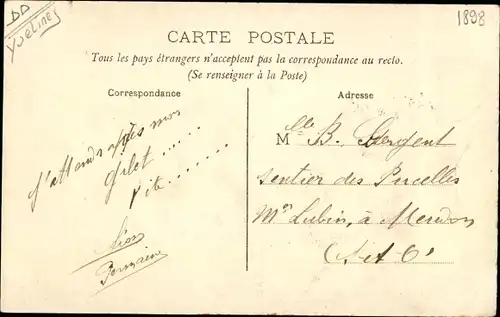 DD
Yvelines
1898
CARTE POSTALE
Tous les pays étrangers n'acceptent pas la correspondance au recto.
(Se renseigner à la Poste)
Correspondance
Adresse
J'attends après mon
Gilet .....
Vite .......
Germain
Mlle B. Sergent
sentier des Pucelles
Mon Lubin, à Meudon
(S et O)